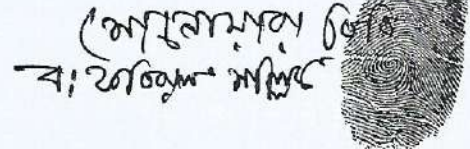 (আনোয়ারা বিবি
ব: ফরিদুল মল্লিক